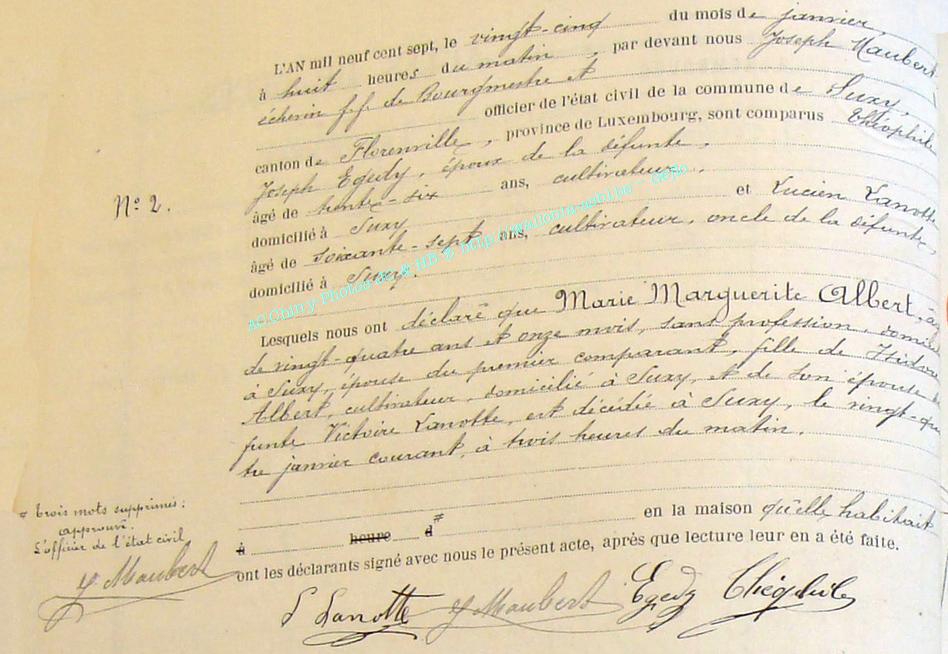 L'AN mil neuf cent sept, le vingt-cinq du mois de janvier,
à huit heures du matin, par devant nous Joseph Maubert
échevin f.f. de Bourgmestre et
officier de l'état civil de la commune de Suxy,
canton de Florenville, province de Luxembourg, sont comparus Théophile
Joseph Egedy, époux de la défunte,
âgé de trente-six ans, cultivateur,
domicilié à Suxy et Lucien Lanotte
âgé de soixante-sept ans, cultivateur, oncle de la défunte,
domicilié à Suxy.
N° 2.
Lesquels nous ont déclaré que Marie Marguerite Albert, âg
de vingt-quatre ans et onze mois, sans profession, domici
à Suxy, épouse du premier comparant, fille de Isidore
Albert, cultivateur, domicilié à Suxy, et de son épouse
funte Victoire Lanotte, est décédée à Suxy, le vingt-qua
tre janvier courant, à trois heures du matin,
en la maison qu'elle habitait
à heure d#
ont les déclarants signé avec nous le présent acte, après que lecture leur en a été faite.
# Trois mots supprimés:
approuvé.
L'officier de l'état civil
J Maubert
L Lanotte J Maubert Egedy Théophile